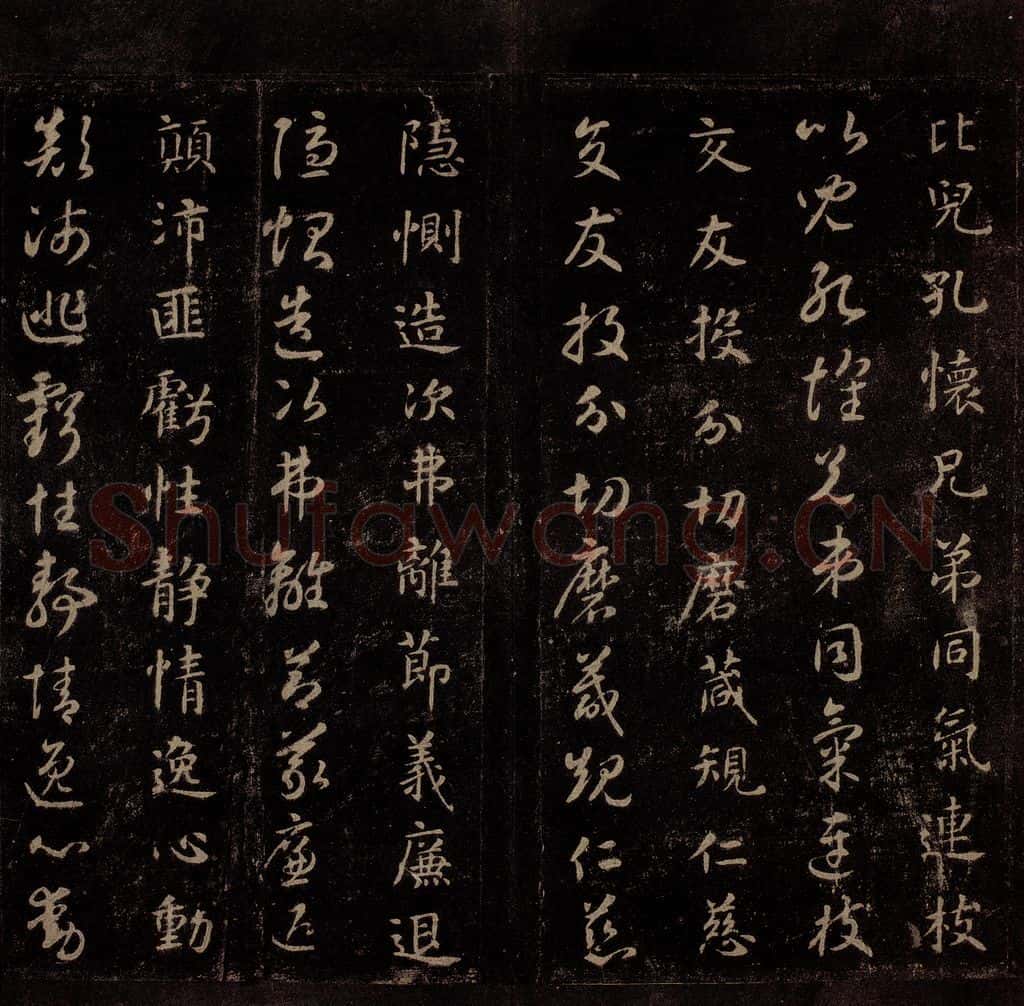 比兒孔懷兄弟同氣連枝
比兒孔懷兄弟同氣連枝
交友投分切磨葴規仁慈
交友投分切磨葴規仁慈
隱惻造次弗離節義廉退
隱惻造次弗離節義廉退
顛沛匪虧性靜情逸心動
顛沛匪虧性靜情逸心動
Shufawang.CN